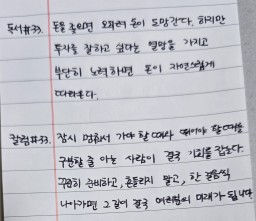 독서#33. 돈을 좇으면 오히려 돈이 도망간다. 하지만
투자를 잘하고 싶다는 열망을 가지고
부단히 노력하면 돈이 자연스럽게
따라온다.
칼럼#33. 잠시 멈춰서 가야 할 때와 뛰어야 할 때를
구분할 줄 아는 사람이 결국 기회를 잡는다.
꾸준히 준비하고, 흔들리지 말고, 한 걸음씩
나아가면 그 길이 결국 여러분의 미래가 됩니다